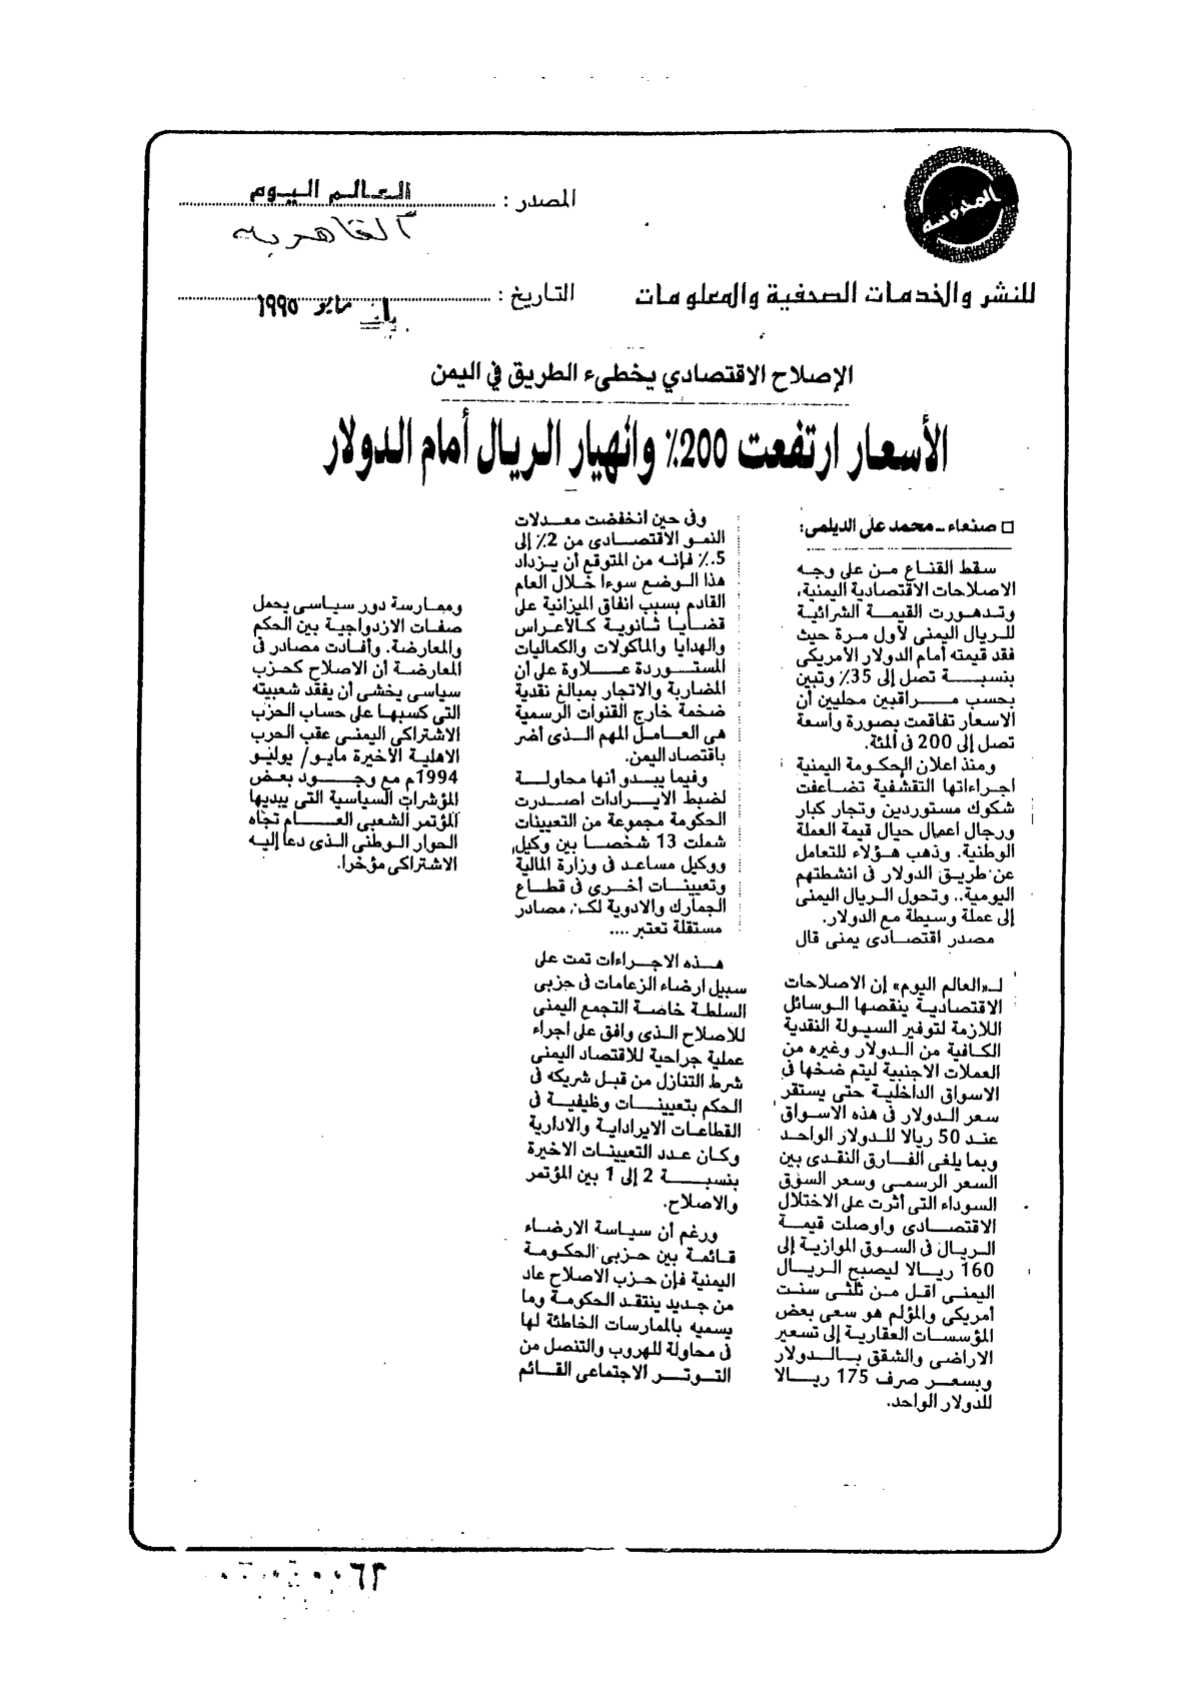 المحروسة
للنشر والخدمات الصحفية والمعلومات
المصدر : العالم اليوم
القاهرية
التاريخ : مايو ١٩٩٥
الإصلاح الاقتصادي يخطىء الطريق في اليمن
الأسعار ارتفعت 200٪ وانهيار الريال أمام الدولار
□ صنعاء ـ محمد على الديلمى:
سقط القناع من على وجه
الاصلاحات الاقتصادية اليمنية،
وتدهورت القيمة الشرائية
للريال اليمنى لأول مرة حيث
فقد قيمته أمام الدولار الأمريكى
بنسبة تصل إلى 35٪ وتبين
بحسب مراقبين محليين أن
الاسعار تفاقمت بصورة واسعة
تصل إلى 200 فى المئة.
ومنذ اعلان الحكومة اليمنية
اجراءاتها التقشفية تضاعفت
شكوك مستوردين وتجار كبار
ورجال اعمال حيال قيمة العملة
الوطنية. وذهب هؤلاء للتعامل
عن طريق الدولار فى انشطتهم
اليومية.. وتحول الريال اليمنى
إلى عملة وسيطة مع الدولار.
مصدر اقتصادى يمنى قال
لـ«العالم اليوم» إن الاصلاحات
الاقتصادية ينقصها الوسائل
اللازمة لتوفير السيولة النقدية
الكافية من الدولار وغيره من
العملات الاجنبية ليتم ضخها فى
الاسواق الداخلية حتى يستقر
سعر الدولار فى هذه الاسواق
عند 50 ريالا للدولار الواحد
وبما يلغى الفارق النقدى بين
السعر الرسمى وسعر السوق
السوداء التى أثرت على الاختلال
الاقتصادى واوصلت قيمة
الريال فى السوق الموازية إلى
160 ريالا ليصبح الريال
اليمنى اقل من ثلثى سنت
أمريكى والمؤلم هو سعى بعض
المؤسسات العقارية إلى تسعير
الاراضى والشقق بالدولار
وبسعر صرف 175 ريالا
للدولار الواحد.
وفى حين انخفضت معدلات
النمو الاقتصادى من 2٪ إلى
5.٪ فإنه من المتوقع أن يزداد
هذا الوضع سوءا خلال العام
القادم بسبب انفاق الميزانية على
قضايا ثانوية كالأعراس
والهدايا والمأكولات والكماليات
المستوردة علاوة على أن
المضاربة والاتجار بمبالغ نقدية
ضخمة خارج القنوات الرسمية
هى العامل المهم الذى أضر
باقتصاد اليمن.
وفيما يبدو أنها محاولة
لضبط الايرادات اصدرت
الحكومة مجموعة من التعيينات
شملت 13 شخصا بين وكيل
ووكيل مساعد فى وزارة المالية
وتعيينات أخرى فى قطاع
الجمارك والادوية لكن مصادر
مستقلة تعتبر ....
هذه الاجراءات تمت على
سبيل ارضاء الزعامات فى حزبى
السلطة خاصة التجمع اليمنى
للاصلاح الذى وافق على اجراء
عملية جراحية للاقتصاد اليمنى
شرط التنازل من قبل شريكه فى
الحكم بتعيينات وظيفية فى
القطاعات الايرادية والادارية
وكان عدد التعيينات الاخيرة
بنسبة 2 إلى 1 بين المؤتمر
والاصلاح.
ورغم أن سياسة الارضاء
قائمة بين حزبى الحكومة
اليمنية فإن حزب الاصلاح عاد
من جديد ينتقد الحكومة وما
يسميه بالممارسات الخاطئة لها
فى محاولة للهروب والتنصل من
التوتر الاجتماعى القائم
وممارسة دور سياسى يحمل
صفات الازدواجية بين الحكم
والمعارضة. وأفادت مصادر فى
المعارضة أن الاصلاح كحزب
سياسى يخشى أن يفقد شعبيته
التى كسبها على حساب الحزب
الاشتراكى اليمنى عقب الحرب
الاهلية الأخيرة مايو/ يوليو
1994م مع وجود بعض
المؤشرات السياسية التى يبديها
المؤتمر الشعبى العام تجاه
الحوار الوطنى الذى دعا إليه
الاشتراكى مؤخرا.